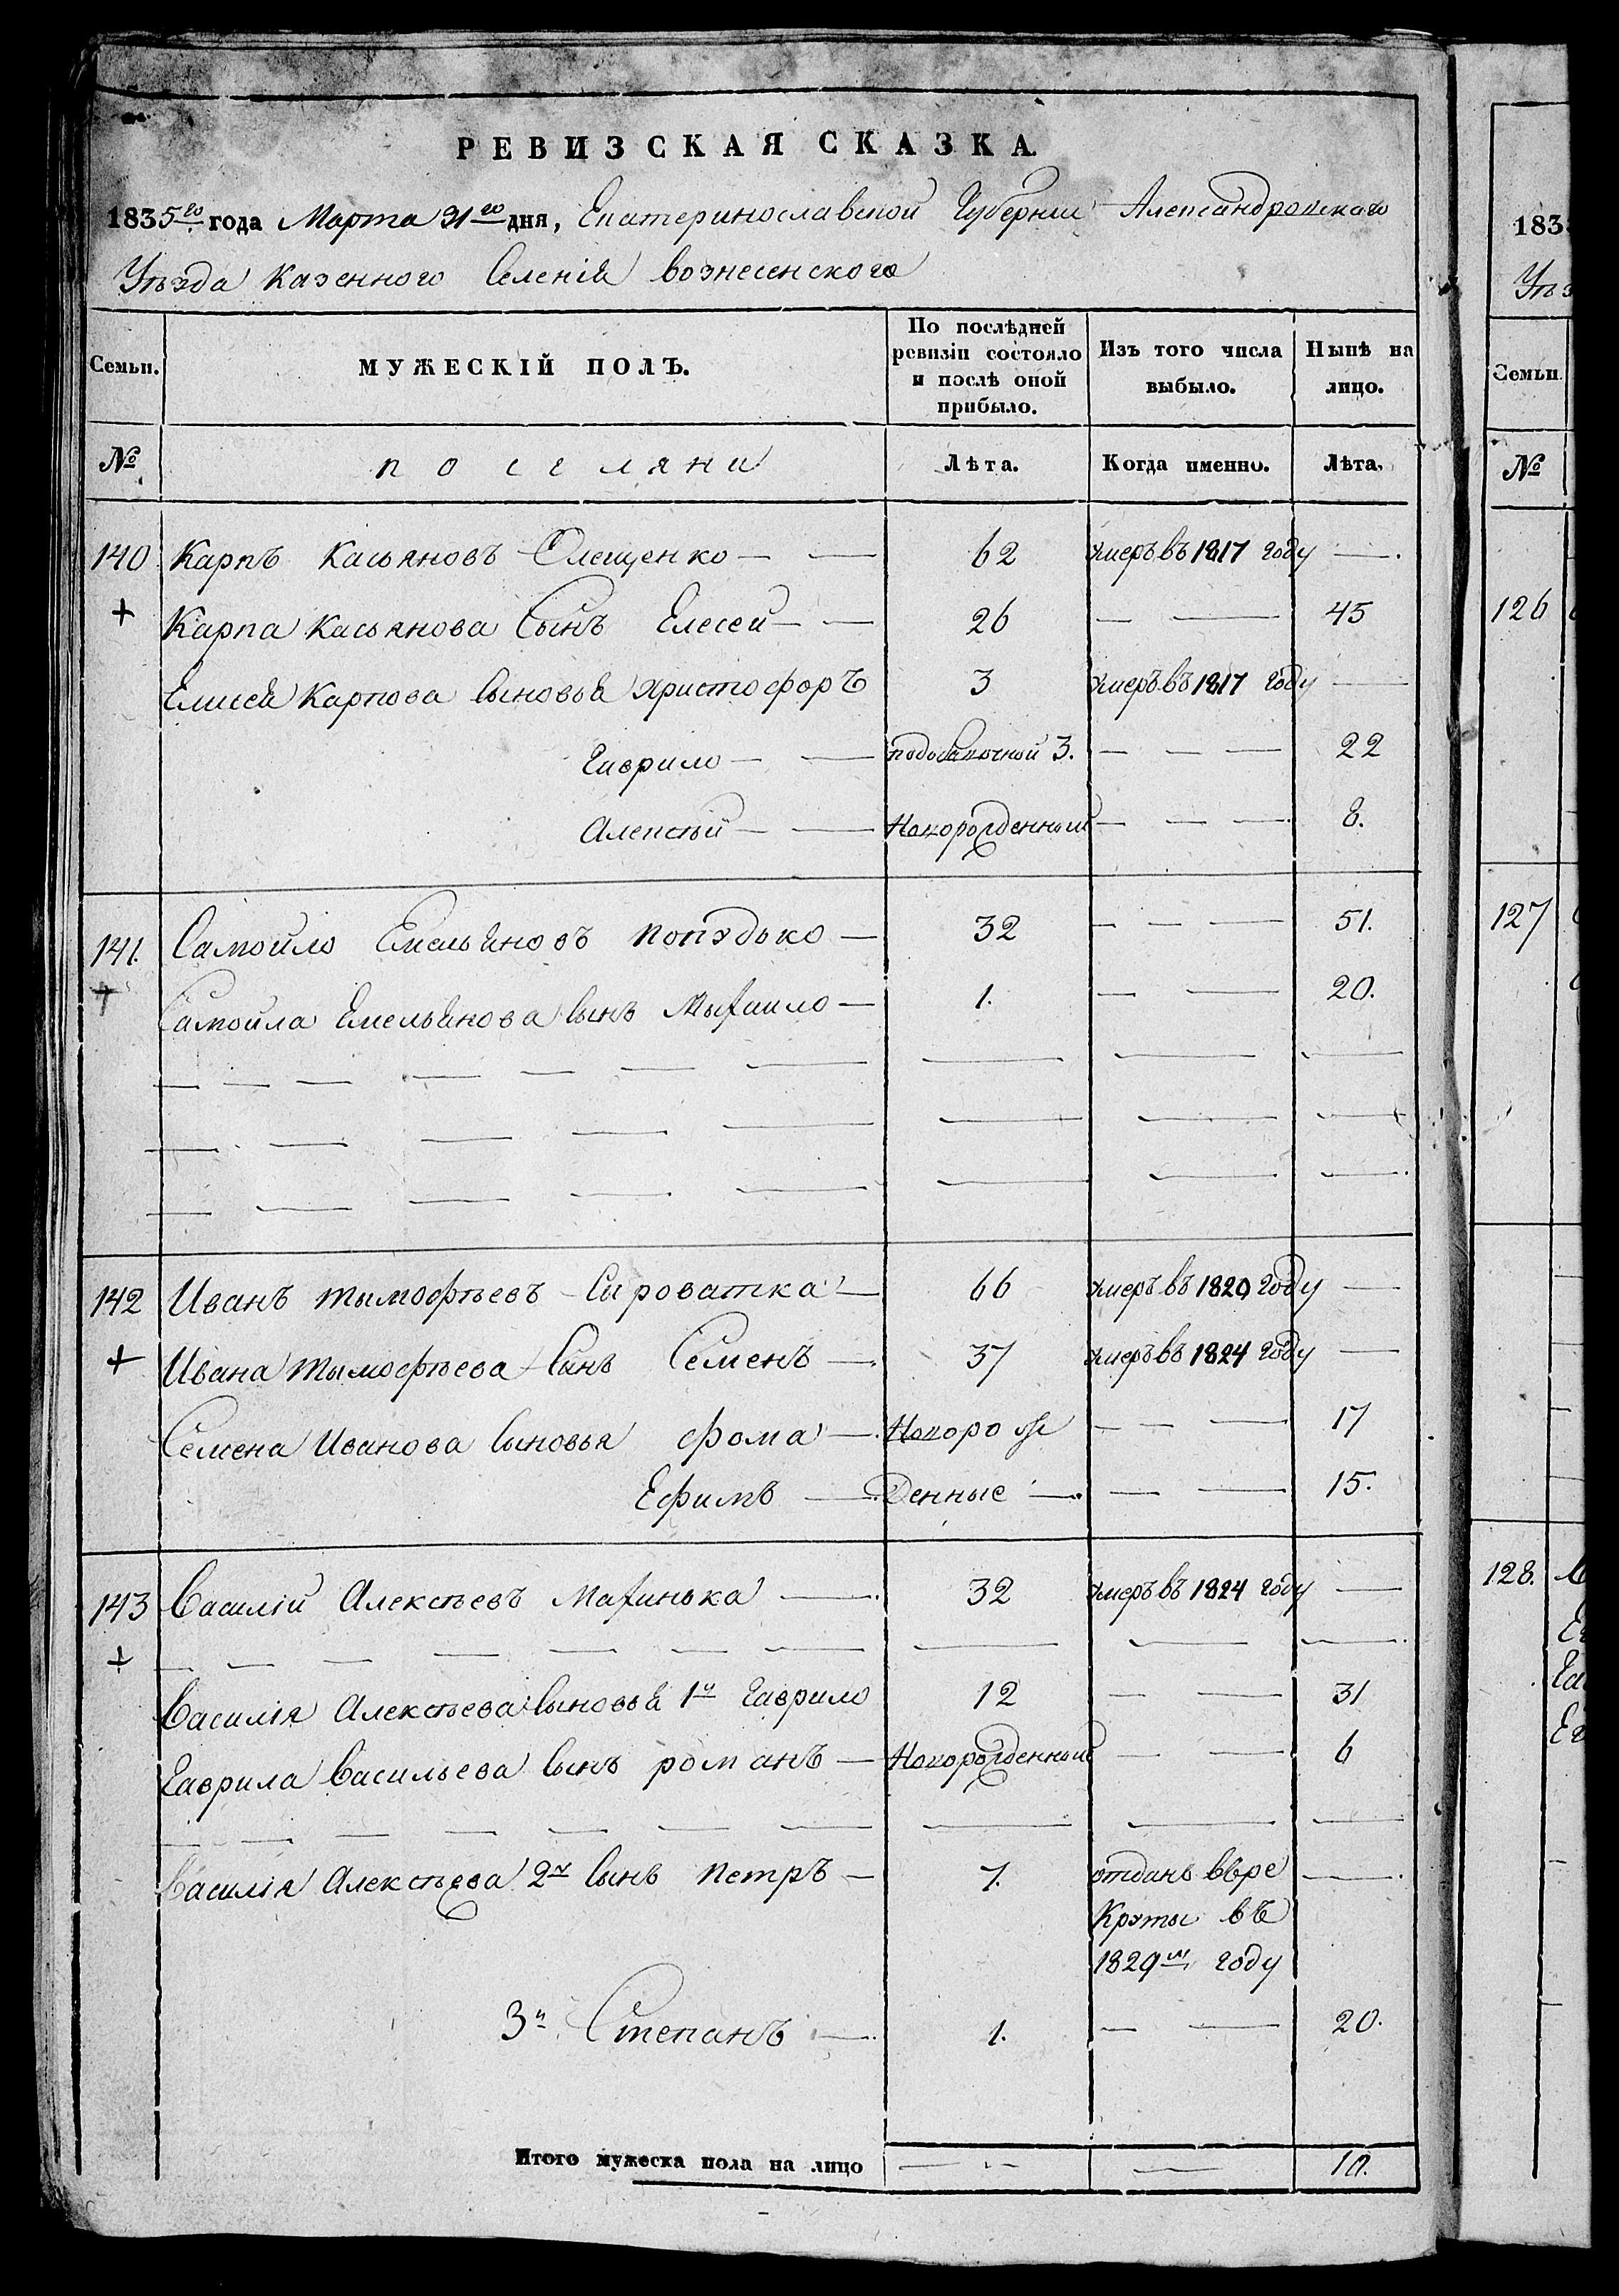 РЕВИЗСКАЯ СКАЗКА.
1835го года Марта 31го дня, Екатеринославской Губернии Александровскаго
Уѣзда казенного Селенія вознесенского
Семьи. МУЖЕСКІЙ ПОЛЪ. По послѣдней ревизіи состояло и послѣ оной прибыло. Изъ того числа выбыло. Нынѣ на лицо.
№ поселяни Лѣта. Когда именно. Лѣта.
140 Карпъ Касьяновъ Олещенко — — 62 умеръ въ 1817 году — .
+ Карпа Касьянова Сынъ Елесей — — 26 — — 45
Елисея Карпова Сыновья христофоръ 3 умеръ въ 1817 году —
Гаврило — — 3. — — — 22
Алексѣй — — Новорожденный — — — 8.
141. Самойло Емельяновъ — 32 — — — 51.
+ Самойла Емельянова Сынъ Мыхаило — 1. — — 20.
142 Иванъ тымофѣевъ Сыроватка — 66 умеръ въ 1820 году —
+ Ивана тымофѣева Сынъ Семенъ — . 37 умеръ въ 1824 году —
Семена Иванова Сыновья фома — . Новорож — — — 17
Ефимъ — . Денные — . — — — 15.
143 Василій Алексѣевъ Махинька — . 32 умеръ въ 1824 году —
+
Василія Алексѣева Сыновья 1й Гаврило 12 — — 31
Гаврила Васильева Сынъ романъ — Новорожденный — — 6
Василія Алексѣева 2й Сынъ Петръ — 7. отданъ въ ре — .
Круты въ
1829м году
3й Степанъ — . 1. — — 20.
Итого мужеска пола на лицо — — — 10.
183
Уѣз
Семьи.
№
126
127
128.